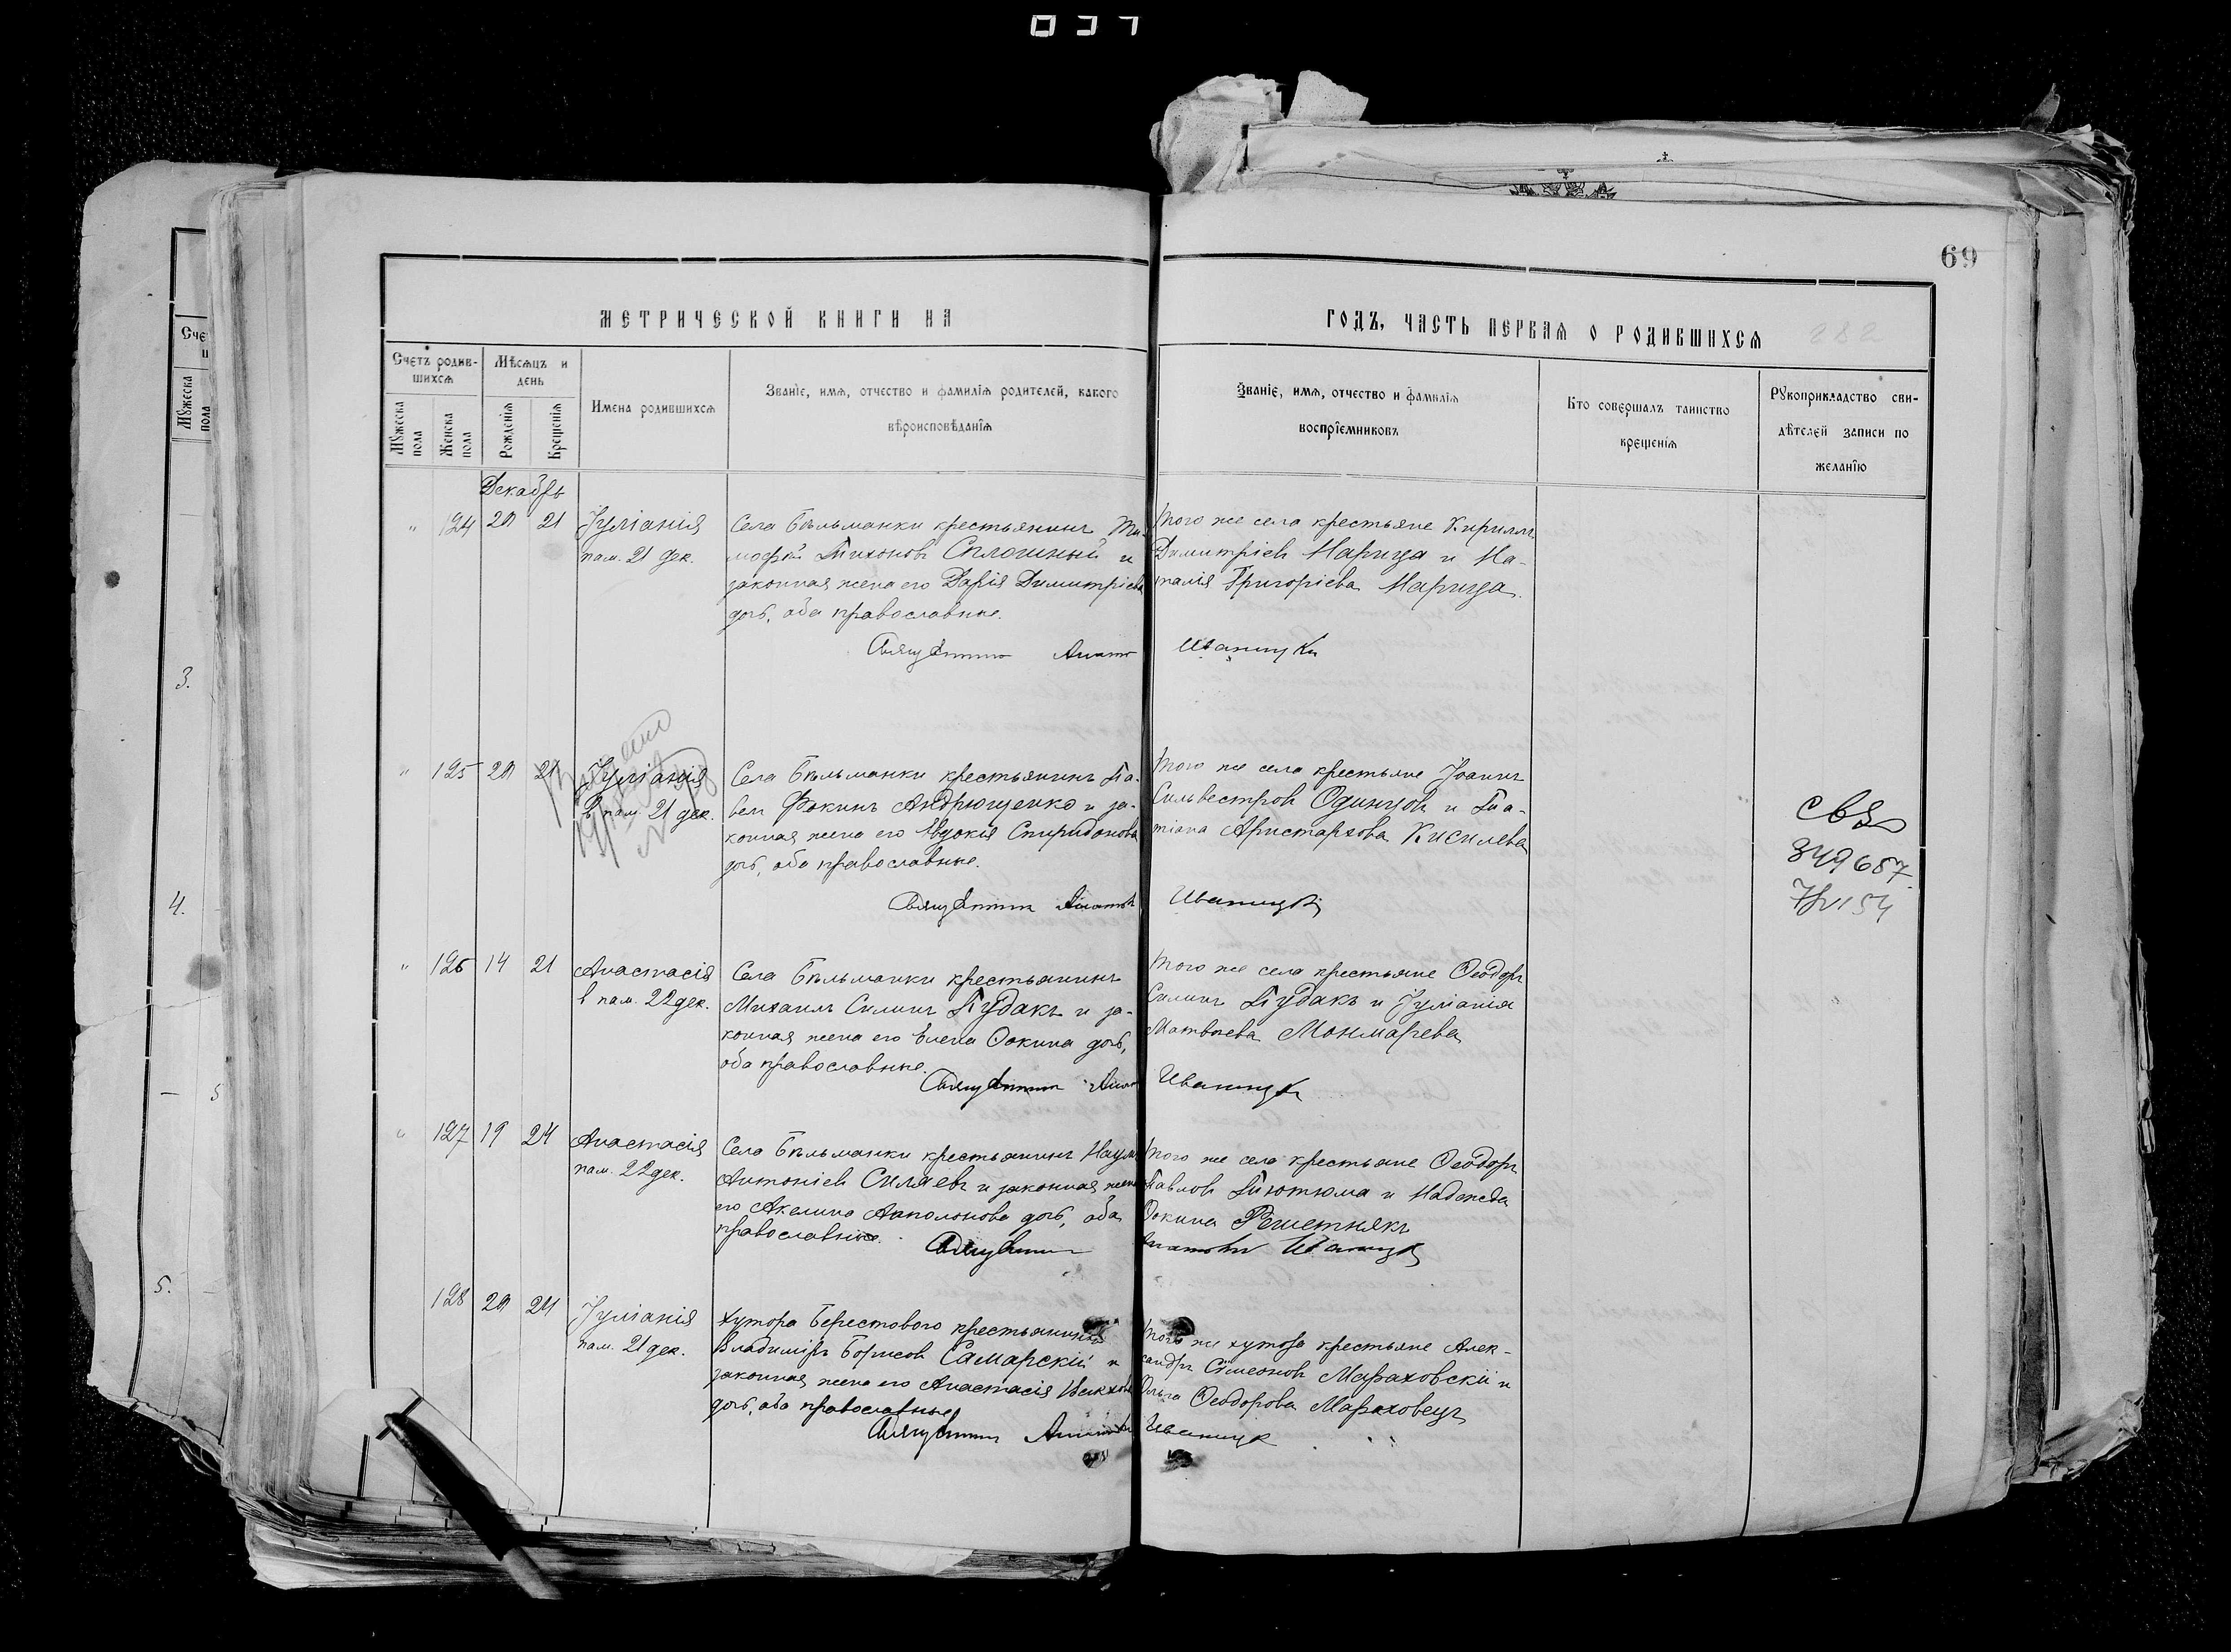 037
69
МЕТРИЧЕСКОЙ КНИГИ НА
ГОДЪ, ЧАСТЬ ПЕРВАЯ О РОДИВШИХСЯ
282
Счетъ родив-
шихся
Мѣсяцъ и
день
Мужеска
пола
Женска
пола
Рожденія
Крещенія
Имена родившихся
Званіе, имя, отчество и фамилія родителей, какого
вѣроисповѣданія
Званіе, имя, отчество и фамилія
воспріемниковъ
Кто совершалъ таинство
крещенія
Рукоприкладство сви-
дѣтелей записи по
желанію
Мужеска
пола
3.
4.
5
5.
Декабрь
" 124 20 21
Іуліанія
пам. 21 дек.
Села Бѣльманки крестьянинъ Ти-
мофей Тихоновъ Сплошный и
законная жена его Дарія Димитріева
дочь, оба православные.
Того же села крестьяне Кириллъ
Димитріевъ Марица и На-
талія Григоріева Марица.
Священникъ Иваницкій
" 125 20 21
Іуліанія
в пам. 21 дек.
Села Бѣльманки крестьянинъ Па-
велъ Фокинъ Андрющенко и за-
конная жена его Евдокія Спиридонова
дочь, оба православные.
Того же села крестьяне Іоаннъ
Сильвестровъ Одинцовъ и Та-
тіана Аристархова Кисилева
Священникъ Иваницкій
349687
154
" 126 14 21
Анастасія
в пам. 22 дек.
Села Бѣльманки крестьянинъ
Михаилъ Силинъ Пудакъ и за-
конная жена его Елена Ѳокина дочь,
оба православные.
Того же села крестьяне Ѳеодоръ
Силинъ Пудакъ и Іуліанія
Матвѣева Монмарева
Священникъ Иваницкій
" 127 19 24
Анастасія
пам. 22 дек.
Села Бѣльманки крестьянинъ Наумъ
Антоніевъ Силяевъ и законная жена
его Акелина Апполонова дочь, оба
православные.
Того же села крестьяне Ѳеодоръ
Павловъ Тютюма и Надежда
Ѳокина Решетнякъ
Священникъ Иваницкій
128 20 24
Іуліанія
пам. 21 дек.
Хутора Берестового крестьянинъ
Владиміръ Борисовъ Самарскій и
законная жена его Анастасія
дочь, оба православные
Того же хутора крестьяне Алек-
сандръ Симеоновъ Мараховскій и
Ольга Ѳеодорова Мараховецъ
Священникъ Иваницкій